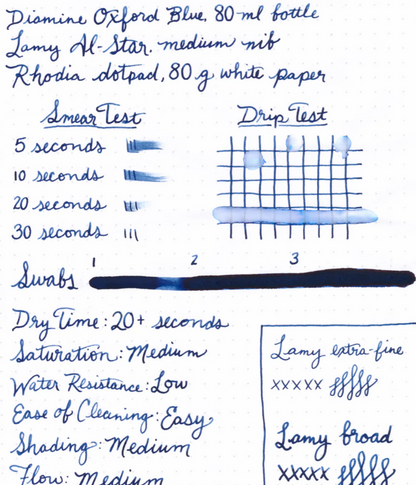 Diamine Oxford Blue, 80 ml bottle
Lamy Al-Star, medium nib
Rhodia dotpad, 80 g white paper
Smear Test
Drip Test
5 seconds
10 seconds
20 seconds
30 seconds
1 2 3
Swabs
Dry Time: 20+ seconds
Saturation: Medium
Water Resistance: Low
Ease of Cleaning: Easy
Shading: Medium
Flow: Medium
Lamy extra-fine
xxxxx
Lamy broad
xxxxx